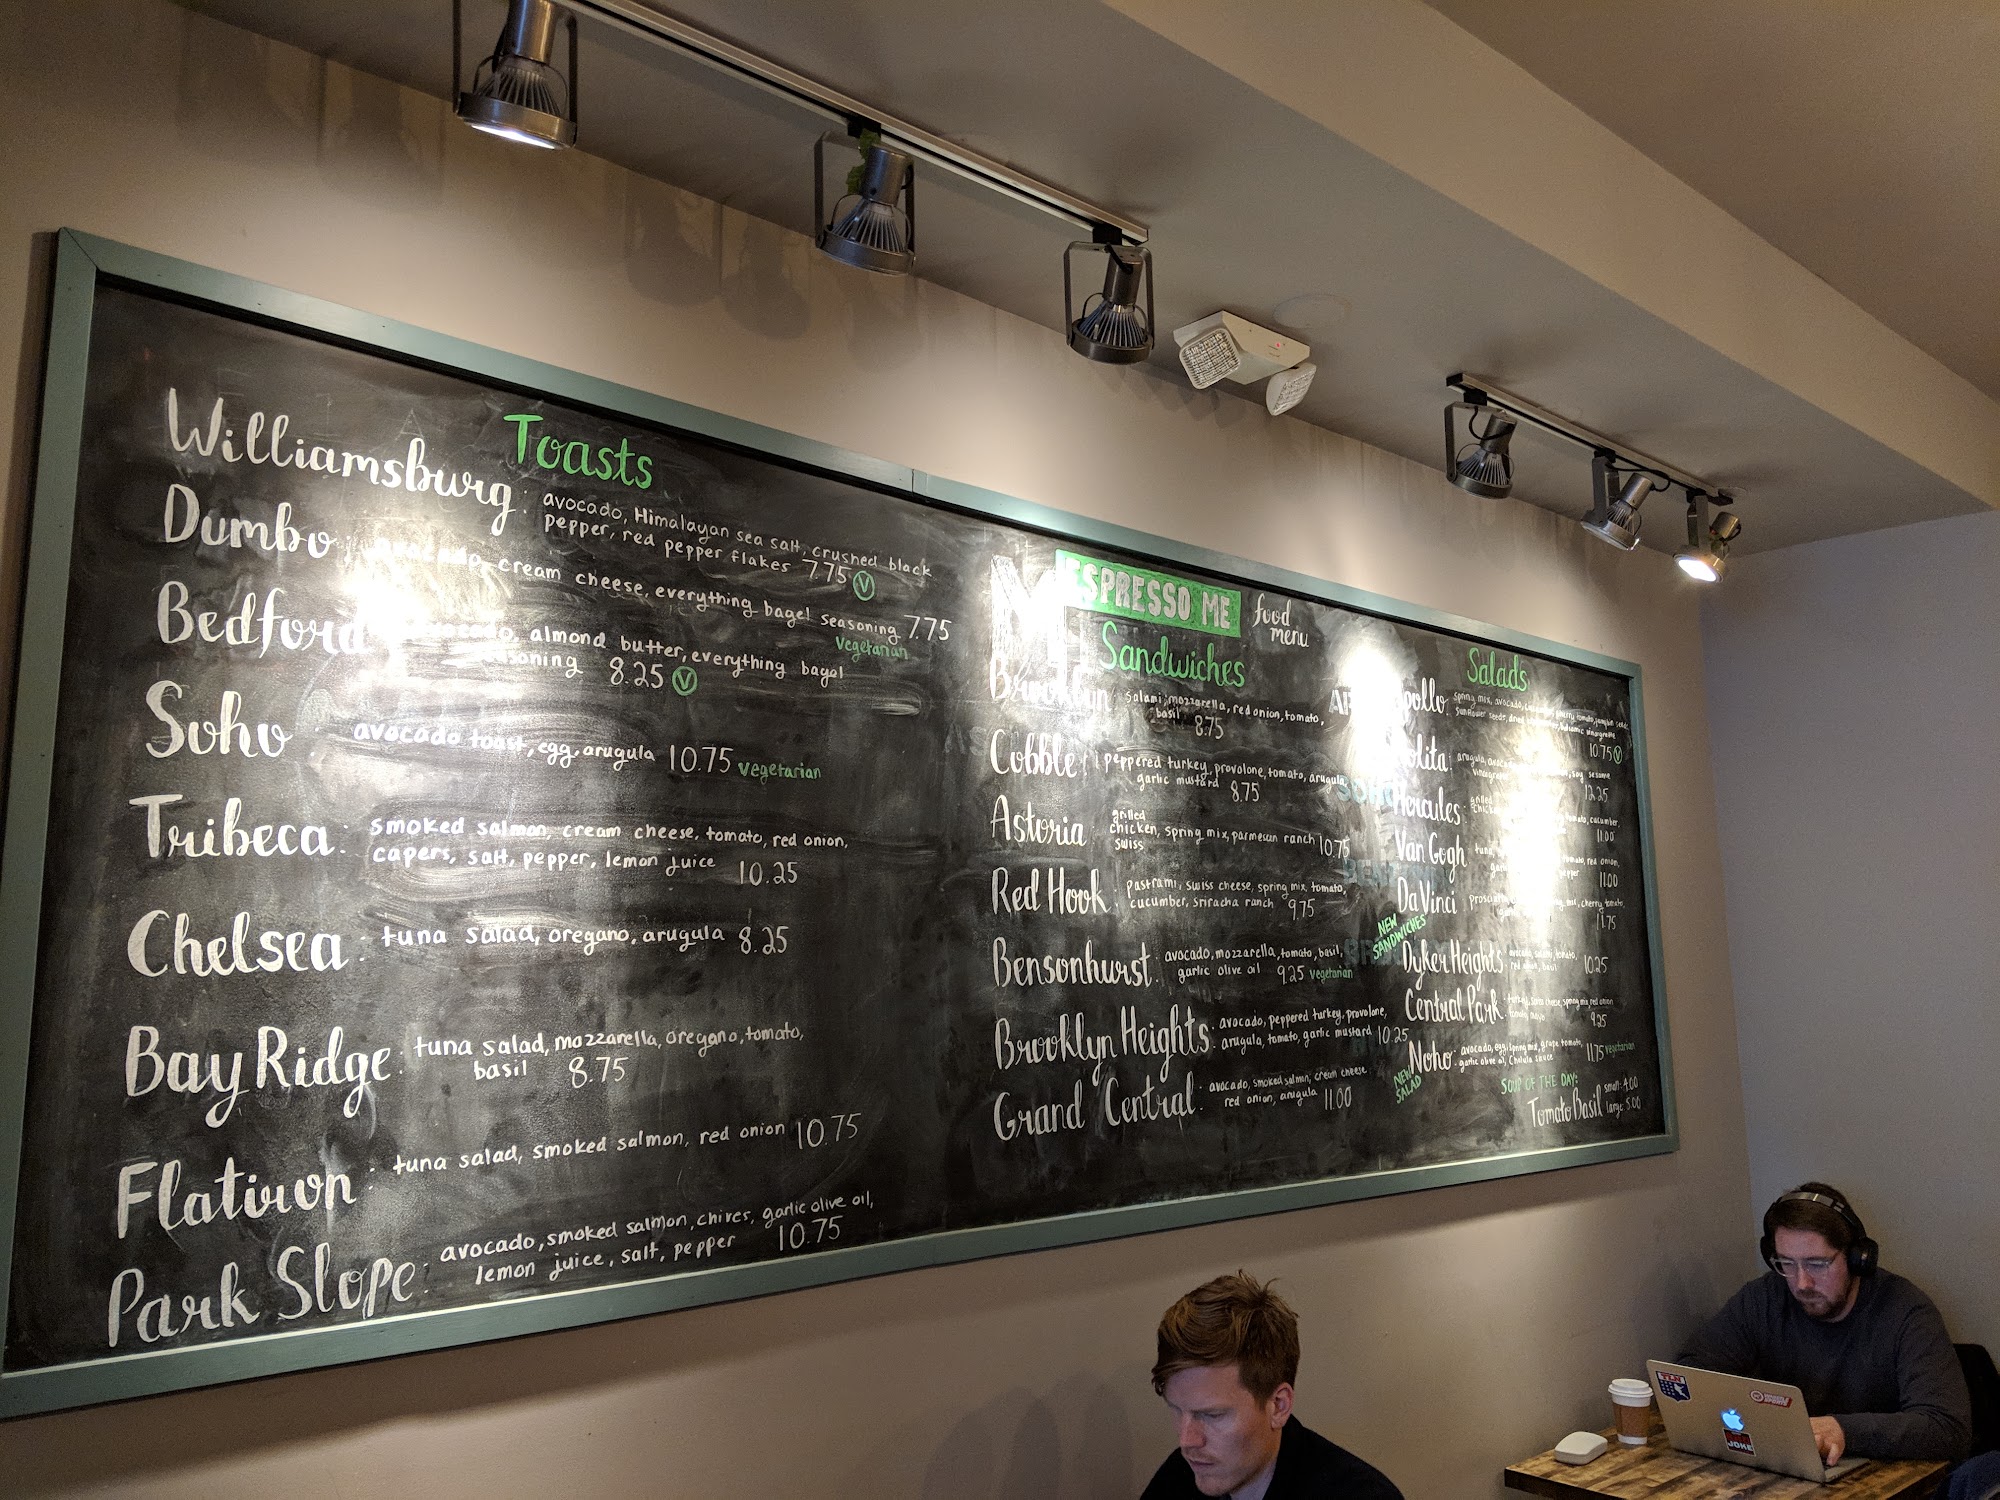 Toasts
Williamsburg: avocado, Himalayan sea salt, crushed black
pepper, red pepper flakes 7.75 V
Dumbo: avocado, cream cheese, everything bagel seasoning 7.75
vegetarian
Bedford avocado, almond butter, everything bagel
seasoning 8.25 V
Soho: avocado toast, egg, arugula 10.75 vegetarian
Tribeca: smoked salmon, cream cheese, tomato, red onion,
capers, salt, pepper, lemon juice 10.25
Chelsea: tuna salad, oregano, arugula 8.25
Bay Ridge: tuna salad, mozzarella, oregano, tomato,
basil 8.75
Flatiron: tuna salad, smoked salmon, red onion 10.75
Park Slope: avocado, smoked salmon, chives, garlic olive oil,
lemon juice, salt, pepper 10.75
ESPRESSO ME food
menu
Sandwiches
Brooklyn salami, mozzarella, red onion, tomato,
basil 8.75
Cobble: peppered turkey, provolone, tomato, arugula,
garlic mustard 8.75
Astoria: grilled
chicken, spring mix, parmesan ranch 10.75
swiss
Red Hook: pastrami, swiss cheese, spring mix, tomato,
cucumber, sriracha ranch 9.75
Bensonhurst: avocado, mozzarella, tomato, basil,
garlic olive oil 9.25 vegetarian
Brooklyn Heights: avocado, peppered turkey, provolone,
arugula, tomato, garlic mustard 10.25
Grand Central: avocado, smoked salmon, cream cheese
red onion, arugula 11.00
Salads
spring mix, avocado,
sunflower seeds, dried
10.75 V
arugula,
soy sesame
12.25
Hercules: grilled
tomato, cucumber,
11.00
Van Gogh: tuna
red onion,
pepper 11.00
Da Vinci cherry tomato,
NEW
SANDWICHES
Dyker Heights avocado, salami, tomato,
red onion, basil 10.25
Central Park: turkey, swiss cheese, spring mix, red onion
tomato, mayo 9.25
Noho: avocado, egg, spring mix, grape tomato,
garlic olive oil, Cholula sauce 11.75 vegetarian
NEW
SALAD
SOUP OF THE DAY:
Tomato Basil small: 4.00
large: 5.00
JOKE